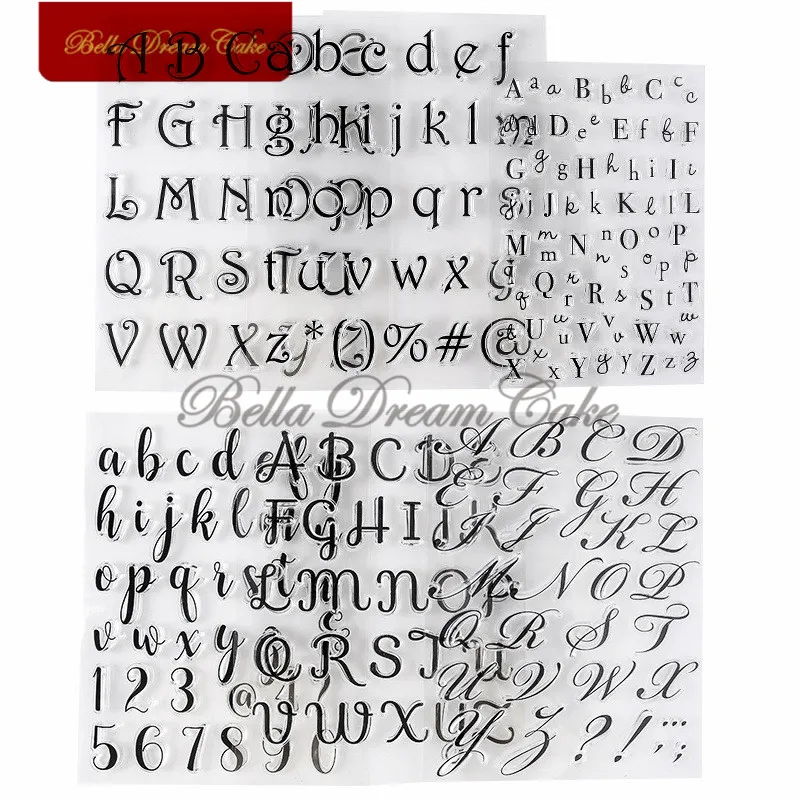 Bella Dream Cake
A B C a b c d e f
F G H g h i j k l m
L M N n o p q r s
Q R S T t u v w x y
V W X z * ( ) % # @
A a a B b b C c c
d d D e e E f f F
G g g H h h i I i
j j J k k K l l L
M m m N n n O o o P p p
q q Q r r R s s S t T
t U u u V v v W w w
X x x Y y y Z z z
Bella Dream Cake
a b c d A B C D
h i j k l F G H I J K
o p q r s L M N O P
v w x y Q R S T U
1 2 3 @ V W X Y Z
5 6 7 8 9 0
A B C D
E F G H
I J K L
M N O P
Q R S T
U V W X
Y Z ? ! , ; :